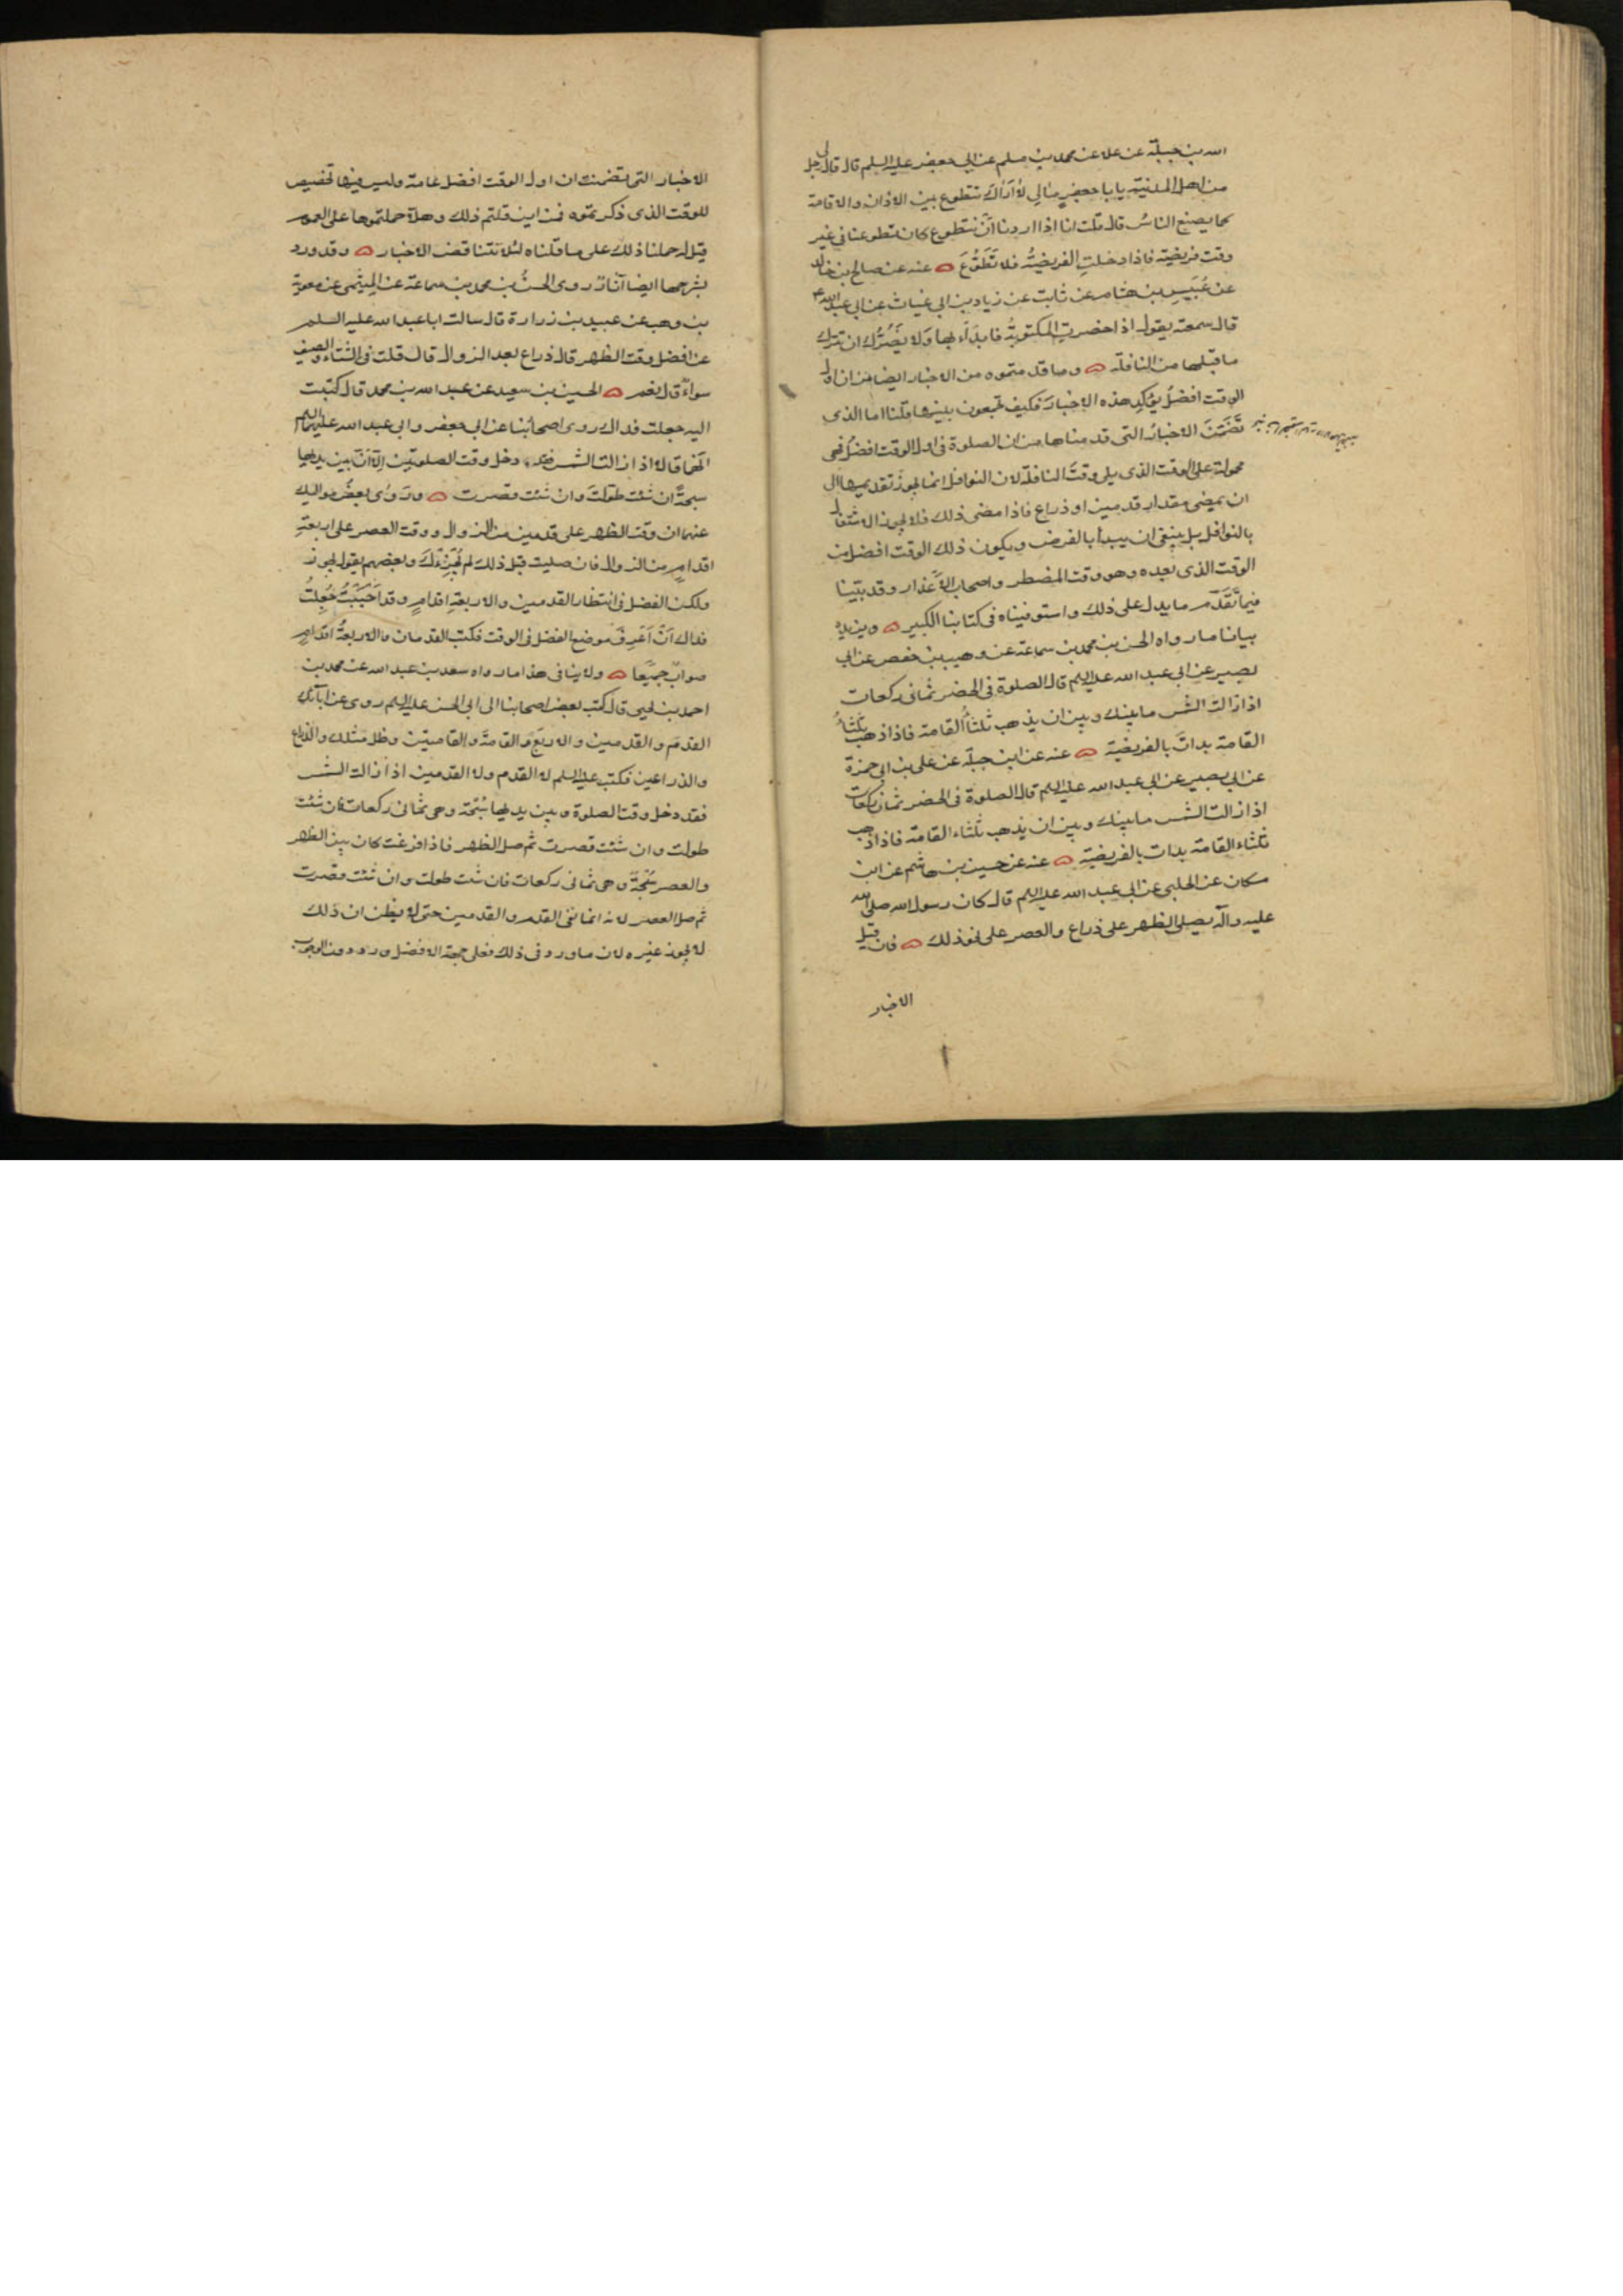 الله بن جبلة عن علا عن محمد بن مسلم عن ابي جعفر عليه السلم قال قال لي رجل
من اهل المدنية يا با جعفر مالي لا اراك تتطوع بين الاذان والاقامة
كما يصنع الناسُ قال قلت انا اذا اردنا انْ نتطوع كان تطوعنا في غير
وقت فريضة فاذا دخلتِ الفريضةُ فلا تَطَوُّعَ ۝ عنه عن صالح بن خالد
عن عُبَيسِ بن هشام عن ثابت عن زياد بن ابي غياث عن ابي عبد الله ع
قال سمعته يقول اذا حضرتِ المكتوبةُ فابدَاْ بها ولا يضُرُّك ان تترك
ما قبلها من النافلة ۝ وما قدمتموه من الاخبار ايضا من ان اول
الوقت افضلُ يؤكد هذه الاخبارَ فكيف تجمعون بينها قلنا اما الذي
تضمّنَ الاخبارُ التي قدمناها من ان الصلوة في اول الوقت افضلُ فهي
محمولة على الوقت الذي يلي وقتَ النافلة لان النوافل انما يجوز تقديمها الى
ان يمضي مقدار قدمين او ذراع فاذا مضى ذلك فلا يجوز الاشتغال
بالنوافل بل ينبغي ان يبدأ بالفرض ويكون ذلك الوقت افضل من
الوقت الذي بعده وهو وقت المضطر واصحاب الاَعذار وقد بيّنا
فيما تقدّم ما يدل على ذلك واستوفيناه في كتابنا الكبير ۝ ويزيده
بيانا ما رواه الحسن بن محمد بن سماعة عن وهيب بن حفص عن ابي
بصير عن ابي عبد الله عليه السلم قال الصلوة في الحضر ثماني ركعات
اذا زالت الشمس ما بينك وبين ان يذهب ثلثاُ القامة فاذا ذهب ثلثاُ
القامة بداتَ بالفريضة ۝ عنه عن ابن جبلة عن علي بن ابي حمزة
عن ابي بصير عن ابي عبد الله عليه السلم قال الصلوة في الحضر ثمان ركعات
اذا زالت الشمس ما بينك وبين ان يذهب ثلثاء القامة فاذا ذهب
ثلثاء القامة بدات بالفريضة ۝ عنه عن حسين بن هاشم عن ابن
مسكان عن الحلبي عن ابي عبد الله عليه السلم قال كان رسول الله صلى الله
عليه وآله يصلي الظهر على ذراع والعصر على نحو ذلك ۝ فان قيل
الاخبار
الاخبار التي تضمنت ان اول الوقت افضل عامة وليس فيها تخصيص
للوقت الذي ذكرتموه فمن اين قلتم ذلك وهلّا حملتموها على العموم
قيل له حملنا ذلك على ما قلناه لئلا تتناقض الاخبار ۝ وقد ورد
بشرحها ايضا آثارٌ روى الحسنُ بن محمد بن سماعة عن الميثمي عن معوية
بن وهب عن عبيد بن زرارة قال سالت ابا عبد الله عليه السلم
عن افضل وقت الظهر قال ذراع بعد الزوال قال قلت في الشتاء والصيف
سواءٌ قال نعم ۝ الحسين بن سعيد عن عبد الله بن محمد قال كتبت
اليه جعلت فداك روى اصحابُنا عن ابي جعفر وابي عبد الله عليهما السلم
انهما قالا اذا زالت الشمس فقد دخل وقت الصلوتين الا اَنّ بين يديها
سبحةً ان شئت طوّلتَ وان شئت قصرت ۝ وروى بعضُ مواليك
عنهما ان وقت الظهر على قدمين من الزوال ووقت العصر على اربعةِ
اقدام من الزوال فان صليت قبل ذلك لم يُجْزِئك وبعضهم يقول يجوز
ولكن الفضل في انتظار القدمين والاربعةِ اقدامٍ وقد احببتُ جُعِلتُ
فداك اَنْ اَعرِفَ موضع الفضل في الوقت فكتب القدمان والاربعةُ اقدامٍ
صوابٌ جميعا ۝ ولا ينافي هذا ما رواه سعد بن عبد الله عن محمد بن
احمد بن يحيى قال كتب بعض اصحابنا الى ابي الحسن عليه السلم روي عن ابآئك
القدم والقدمين والاربع والقامة والقامتين وظل مثلك والذراع
والذراعين فكتب عليه السلم لا القدم ولا القدمين اذا زالت الشمس
فقد دخل وقت الصلوة وبين يديها سُبحة وهي ثماني ركعات فان شئت
طولت وان شئت قصرت ثم صل الظهر فاذا فرغت كان بين الظهر
والعصر سُبْحة وهي ثماني ركعات فان شئت طولت وان شئت قصرت
ثم صل العصر لانه انما نفى القدم والقدمين حتى لا يظن ان ذلك
لا يجوز غيره لان ما ورد في ذلك فعلى جهة الافضل ورد دون الوجوب